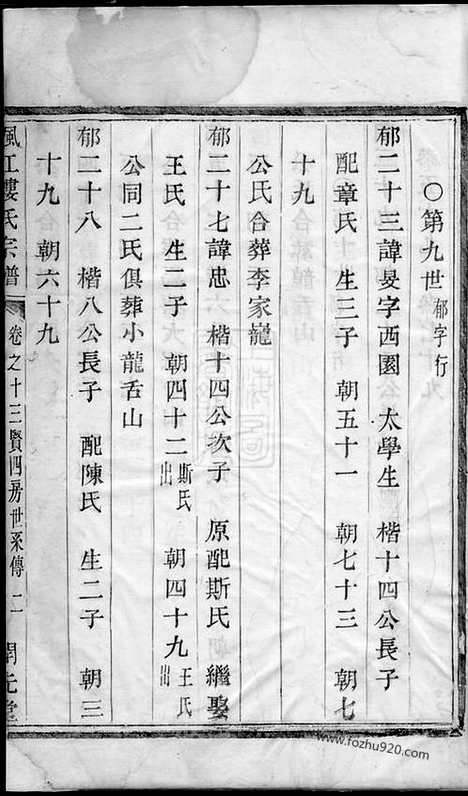 ○第九世郁字行
郁二十三諱旻字西園 太學生 楷十四公長子
配章氏 生三子 朝五十一 朝七十三 朝七
十九
公氏合葬李家巃
郁二十七諱忠 楷十四公次子 原配斯氏 繼娶
王氏 生二子 朝四十二斯氏出 朝四十九王氏出
公同二氏俱葬小龍舌山
郁二十八 楷八公長子 配陳氏 生二子 朝三
十九 朝六十九
楓江樓氏宗譜 卷之十三賢四房世系傳 二
www.fozhu920.com